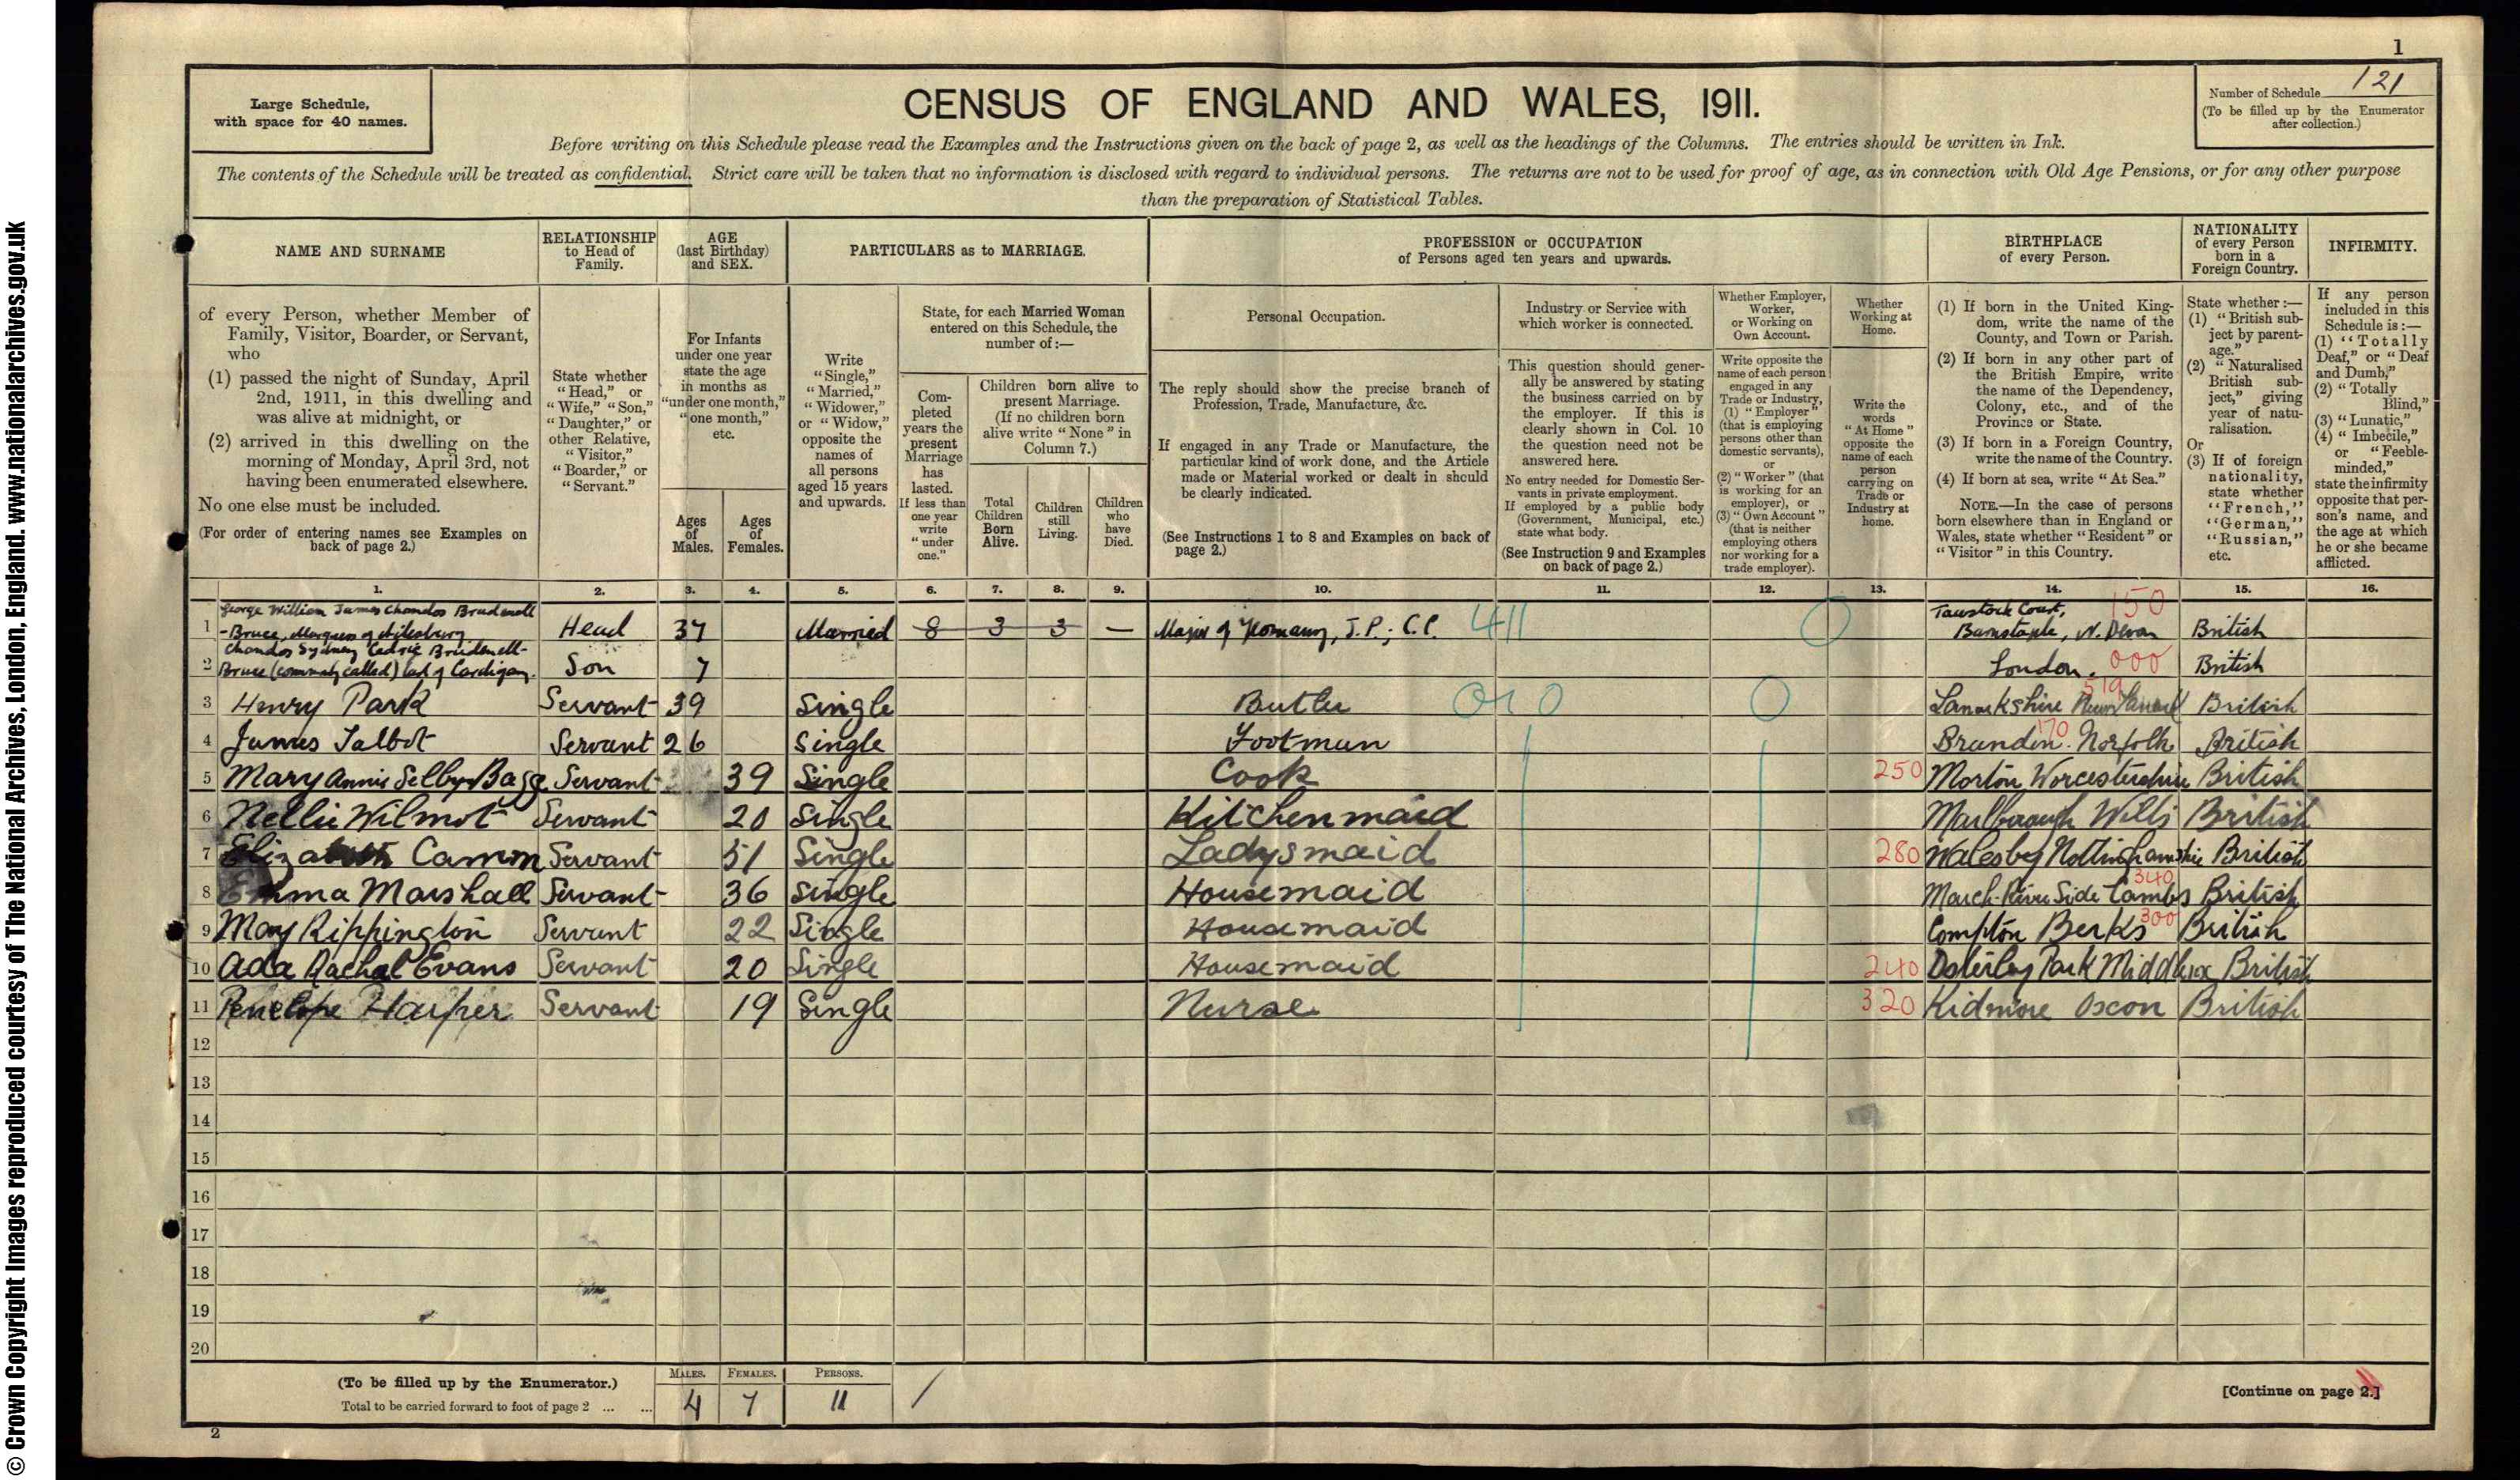 © Crown Copyright Images reproduced courtesy of The National Archives, London, England. www.nationalarchives.gov.uk
1
Large Schedule,
with space for 40 names.
CENSUS OF ENGLAND AND WALES, 1911.
Number of Schedule 121
(To be filled up by the Enumerator
after collection.)
Before writing on this Schedule please read the Examples and the Instructions given on the back of page 2, as well as the headings of the Columns. The entries should be written in Ink.
The contents of the Schedule will be treated as confidential. Strict care will be taken that no information is disclosed with regard to individual persons. The returns are not to be used for proof of age, as in connection with Old Age Pensions, or for any other purpose
than the preparation of Statistical Tables.
NAME AND SURNAME
of every Person, whether Member of
Family, Visitor, Boarder, or Servant,
who
(1) passed the night of Sunday, April
2nd, 1911, in this dwelling and
was alive at midnight, or
(2) arrived in this dwelling on the
morning of Monday, April 3rd, not
having been enumerated elsewhere.
No one else must be included.
(For order of entering names see Examples on
back of page 2.)
RELATIONSHIP
to Head of
Family.
State whether
"Head," or
"Wife," "Son,"
"Daughter," or
other Relative,
"Visitor,"
"Boarder," or
"Servant."
AGE
(last Birthday)
and SEX.
For Infants
under one year
state the age
in months as
"under one month,"
"one month,"
etc.
Ages
of
Males.
Ages
of
Females.
PARTICULARS as to MARRIAGE.
Write
"Single,"
"Married,"
"Widower,"
or "Widow,"
opposite the
names of
all persons
aged 15 years
and upwards.
State, for each Married Woman
entered on this Schedule, the
number of:—
Com-
pleted
years the
present
Marriage
has
lasted.
If less than
one year
write
"under
one."
Children born alive to
present Marriage.
(If no children born
alive write "None" in
Column 7.)
Total
Children
Born
Alive.
Children
still
Living.
Children
who
have
Died.
PROFESSION or OCCUPATION
of Persons aged ten years and upwards.
Personal Occupation.
The reply should show the precise branch of
Profession, Trade, Manufacture, &c.
If engaged in any Trade or Manufacture, the
particular kind of work done, and the Article
made or Material worked or dealt in should
be clearly indicated.
(See Instructions 1 to 8 and Examples on back of
page 2.)
Industry or Service with
which worker is connected.
This question should gener-
ally be answered by stating
the business carried on by
the employer. If this is
clearly shown in Col. 10
the question need not be
answered here.
No entry needed for Domestic Ser-
vants in private employment.
If employed by a public body
(Government, Municipal, etc.)
state what body.
(See Instruction 9 and Examples
on back of page 2.)
Whether Employer,
Worker,
or Working on
Own Account.
Write opposite the
name of each person
engaged in any
Trade or Industry,
(1) "Employer"
(that is employing
persons other than
domestic servants),
or
(2) "Worker" (that
is working for an
employer), or
(3) "Own Account"
(that is neither
employing others
nor working for a
trade employer).
Whether
Working at
Home.
Write the
words
"At Home"
opposite the
name of each
person
carrying on
Trade or
Industry at
home.
BIRTHPLACE
of every Person.
(1) If born in the United King-
dom, write the name of the
County, and Town or Parish.
(2) If born in any other part of
the British Empire, write
the name of the Dependency,
Colony, etc., and of the
Province or State.
(3) If born in a Foreign Country,
write the name of the Country.
(4) If born at sea, write "At Sea."
NOTE.—In the case of persons
born elsewhere than in England or
Wales, state whether "Resident" or
"Visitor" in this Country.
NATIONALITY
of every Person
born in a
Foreign Country.
State whether:—
(1) "British sub-
ject by parent-
age."
(2) "Naturalised
British sub-
ject," giving
year of natu-
ralisation.
Or
(3) If of foreign
nationality,
state whether
"French,"
"German,"
"Russian,"
etc.
INFIRMITY.
If any person
included in this
Schedule is:—
(1) "Totally
Deaf," or "Deaf
and Dumb,"
(2) "Totally
Blind,"
(3) "Lunatic,"
(4) "Imbecile,"
or "Feeble-
minded,"
state the infirmity
opposite that per-
son's name, and
the age at which
he or she became
afflicted.
1. 2. 3. 4. 5. 6. 7. 8. 9. 10. 11. 12. 13. 14. 15. 16.
George William James Chandos Brudenell
1 -Bruce, Marquess of Ailesbury Head 37 Married 8 3 3 — Major of Yeomanry, J.P.; C.C. 411 0 Tawstock Court, 150
Barnstaple, N. Devon British
Chandos Sydney Cedric Brudenell-
2 Bruce (commonly called) Earl of Cardigan. Son 7 London. 000 British
3 Henry Park Servant 39 Single Butler 010 0 Lanarkshire New Lanark 519 British
4 James Talbot Servant 26 Single Footman Brandon. Norfolk 170 British
5 Mary Annie Selby Bagg Servant 39 Single Cook 250 Morton Worcestershire British
6 Nellie Wilmot Servant 20 Single Kitchenmaid Marlborough Wilts British
7 Elizabeth Camm Servant 51 Single Ladysmaid 280 Walesby Nottinghamshire British
8 Emma Marshall Servant 36 Single Housemaid March River Side Cambs 340 British
9 May Rippington Servant 22 Single Housemaid Compton Berks 300 British
10 Ada Rachal Evans Servant 20 Single Housemaid 240 Osterley Park Middlesex British
11 Penelope Harper Servant 19 Single Nurse 320 Kidmore Oxon British
12
13
14
15
16
17
18
19
20
(To be filled up by the Enumerator.)
Total to be carried forward to foot of page 2 ... ...
MALES. FEMALES. PERSONS.
4 7 11
[Continue on page 2.]
2